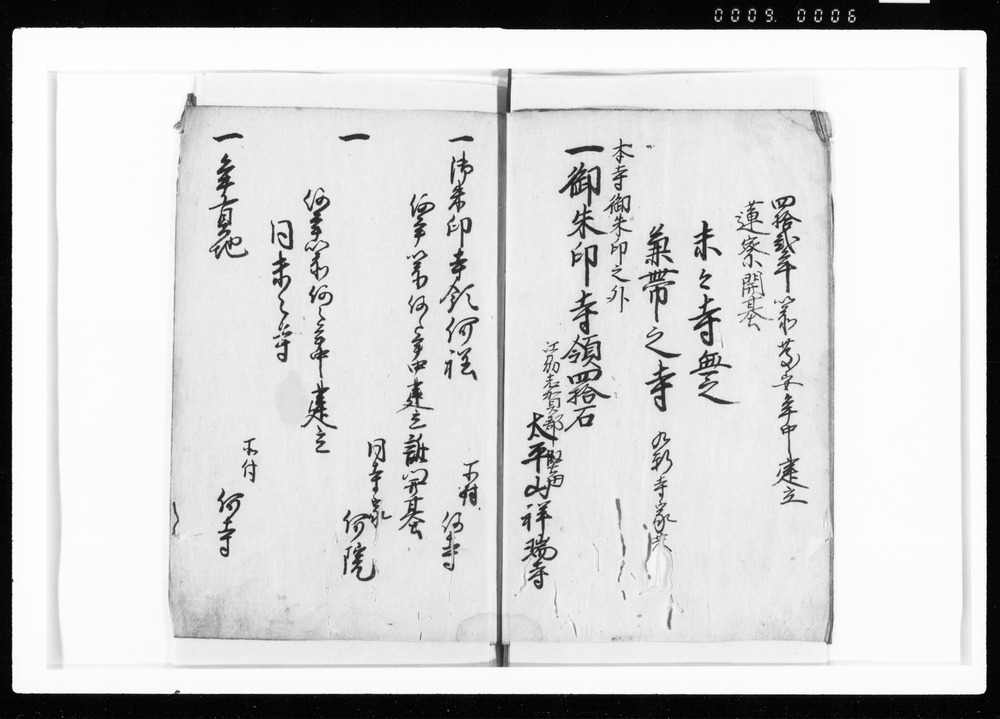 0009. 0006
四拾弐年以前慶安年中建立
蓮寮開基
末々寺無之
兼帯之寺
本寺御朱印之外
一御朱印寺領四拾石
江州志賀郡堅田
太平山祥瑞寺
一御朱印寺領何程
何年以前何之年中建立誰開基
何寺
一
同寺家
何院
何年以前何之年中建立
同末之寺
一年貢地
何寺